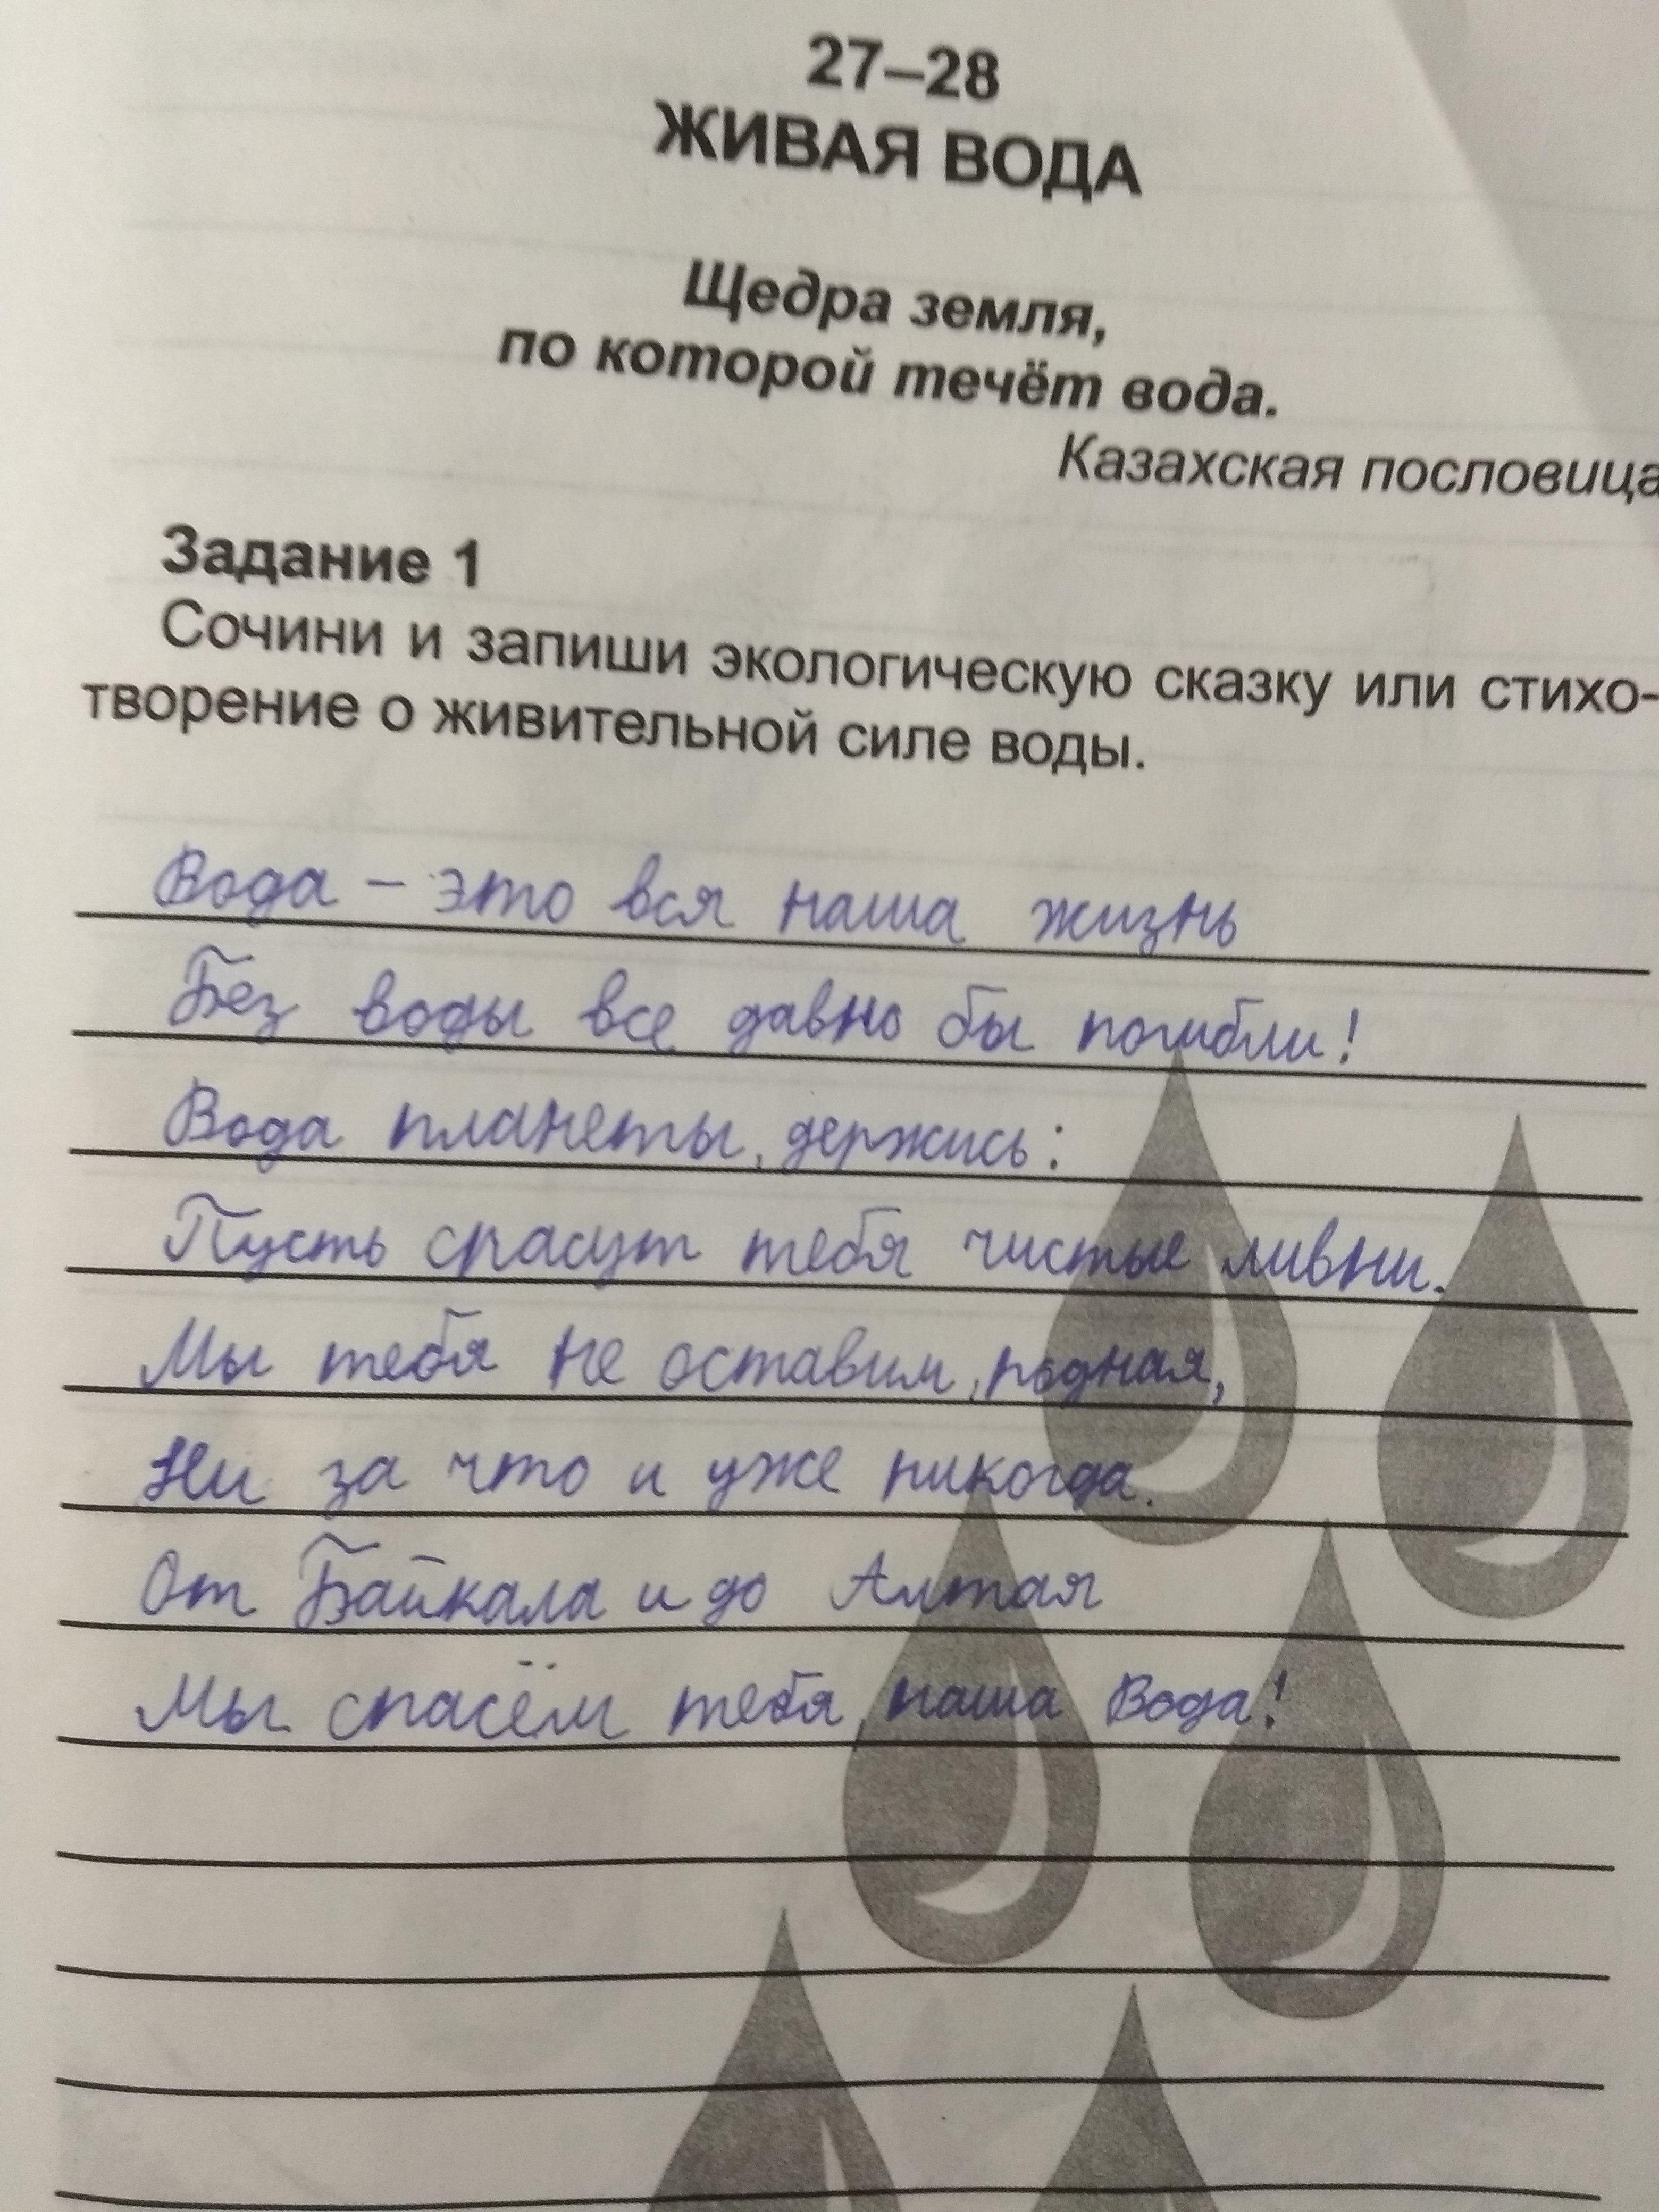 27–28
ЖИВАЯ ВОДА
Щедра земля,
по которой течёт вода.
Казахская пословица
Задание 1
Сочини и запиши экологическую сказку или стихо-
творение о живительной силе воды.
Вода – это вся наша жизнь
Без воды все давно бы погибли!
Вода планеты, держись:
Пусть спасут тебя чистые ливни.
Мы тебя не оставим, родная,
Ни за что и уже никогда.
От Байкала и до Алтая
Мы спасём тебя, наша Вода!